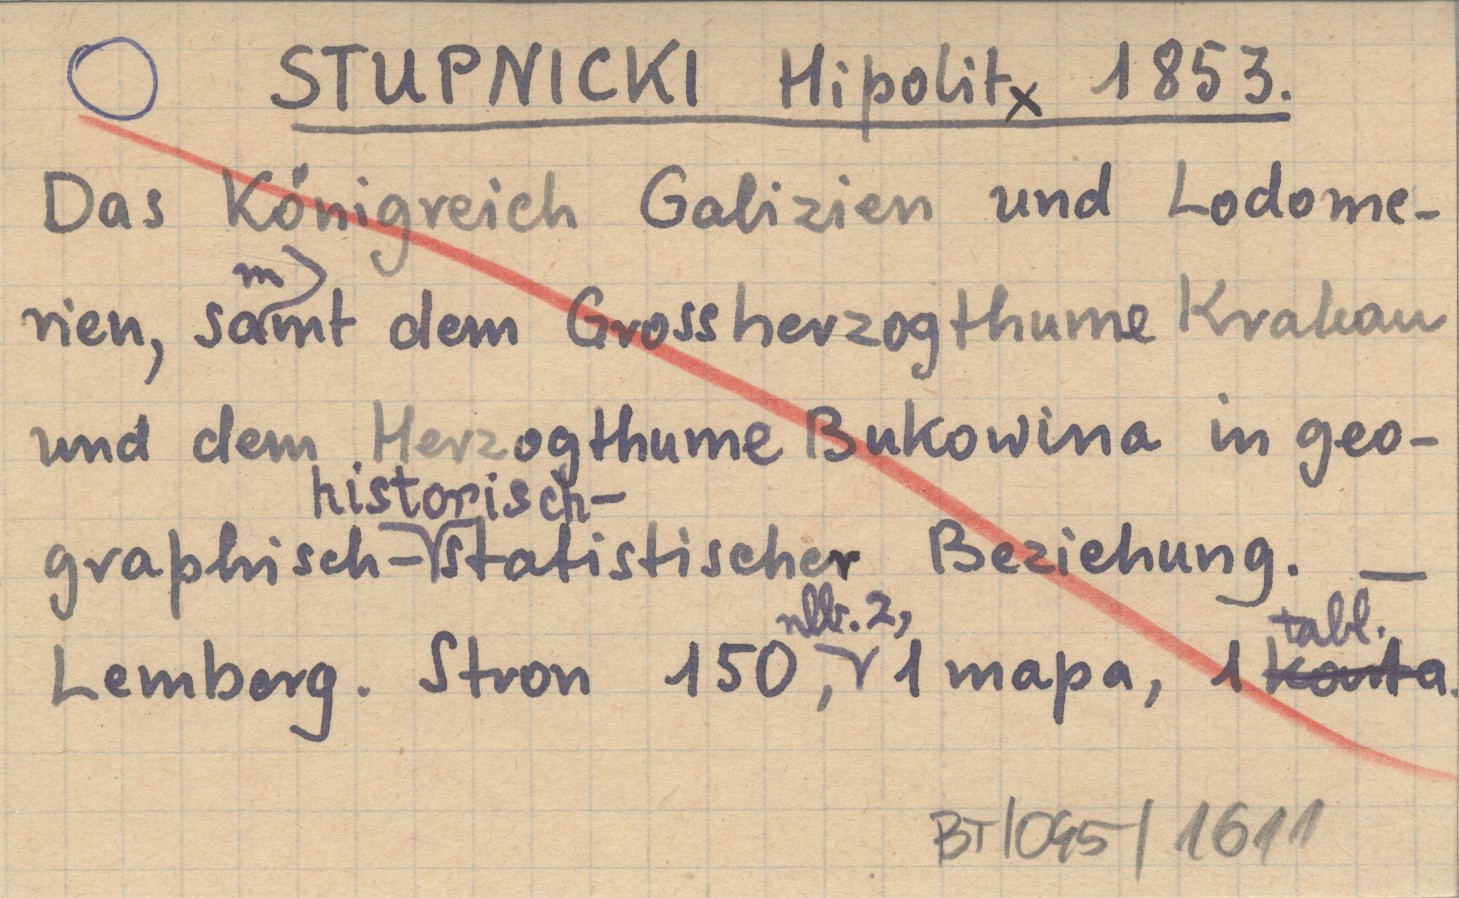 STUPNICKI Hipolit x 1853.
Das Königreich Galizien und Lodome-
m
rien, samt dem Grossherzogthume Krakau
und dem Herzogthume Bukowina in geo-
historisch-
graphisch-statistischer Beziehung. —
nlb. 2, tabl.
Lemberg. Stron 150, 1 mapa, 1 karta.
BT/095/1611